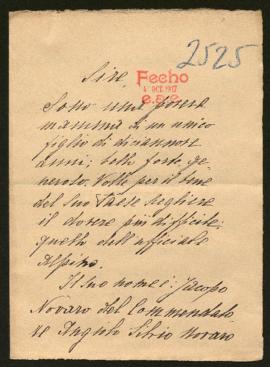 2525
Sire,
Fecho
4 OCT. 1917
e.a.e.
Sono una povera
mamma di un unico
figlio di diciannove
anni; bello forte, ge
neroso. Volle per il bene
del suo Paese scegliere
il dovere più difficile:
quello dell'ufficiale
Alpino.
Il suo nome è: Jacopo
Novaro del Commendato
re Angiolo Silvio Novaro